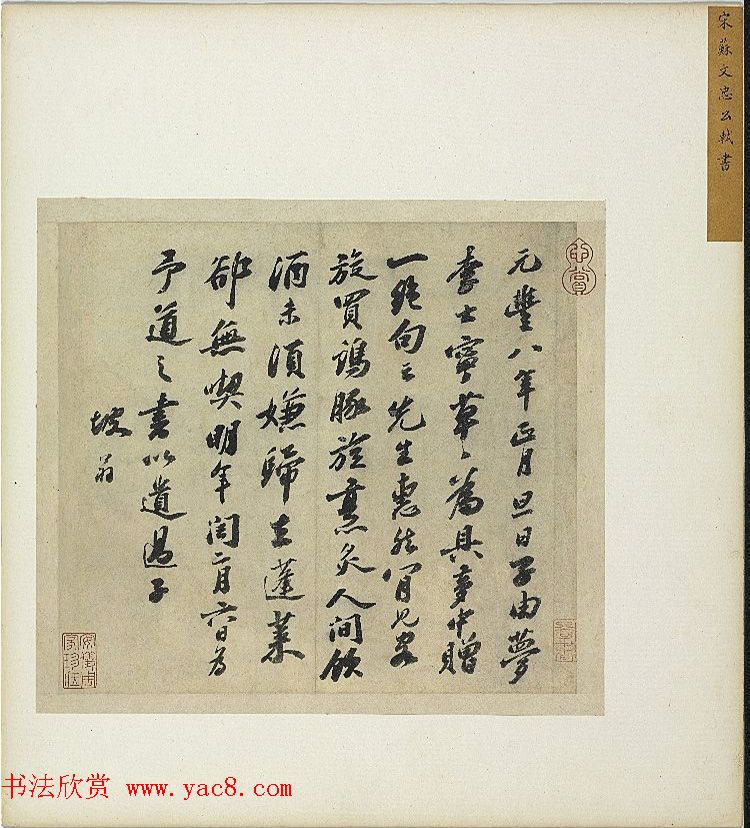 宋蘇文忠公軾書
元豐八年正月旦日子由夢
李士寧草〻為具夢中贈
一絕句云先生惠然肯見客
旋買鷄豚旋烹炙人間飲
酒未須嫌歸去蓬萊
卻無喫明年閏二月六日為
予道之書以遺過子
坡翁
心賞
安儀周家珍藏
书法欣赏 www.yac8.com